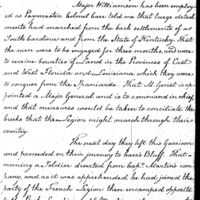 Major Williamson has been employ-
ed as Paymaster. Colonel Carr told me that large detach-
ments had marched from the back settlements of
South Carolina and from the State of Kentucky. That
the men were to be engaged for three months, and were
to receive bounties of Land in the Provinces of East
and West Florida and Louisiana which they were
to conquer from the Spaniards. That M. Genet is ap-
pointed a Major General and is to command in chief,
and that measures would be taken to conciliate the
Indians that the Legion might march through their
country.
The next day they left this Garrison
and proceeded on their journey to Carrs Bluff. That
morning a Soldier deserted from Capt. Martins Com-
pany, and as it was apprehended he had joined the
party of the French Legion then encamped opposite